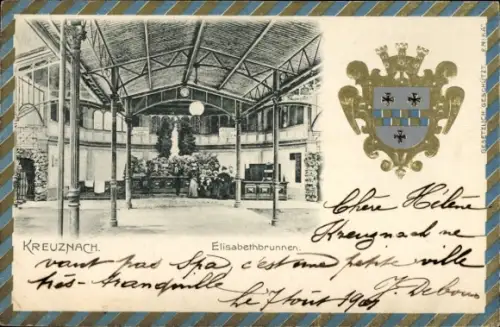 GESETZLICH GESCHÜTZT
KREUZNACH.
Elisabethbrunnen.
Chere Hélène
Kreuznach ne
vaut pas Spa c'est une petite ville
très-tranquille
Le 7 Août 1901